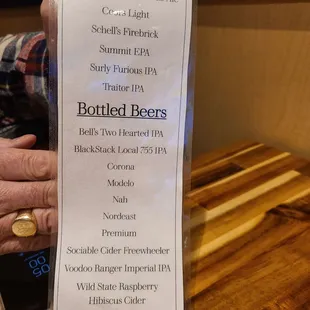 Coors Light
Schell's Firebrick
Summit EPA
Surly Furious IPA
Traitor IPA
Bottled Beers
Bell's Two Hearted IPA
BlackStack Local 755 IPA
Corona
Modelo
Nah
Nordeast
Premium
Sociable Cider Freewheeler
Voodoo Ranger Imperial IPA
Wild State Raspberry
Hibiscus Cider